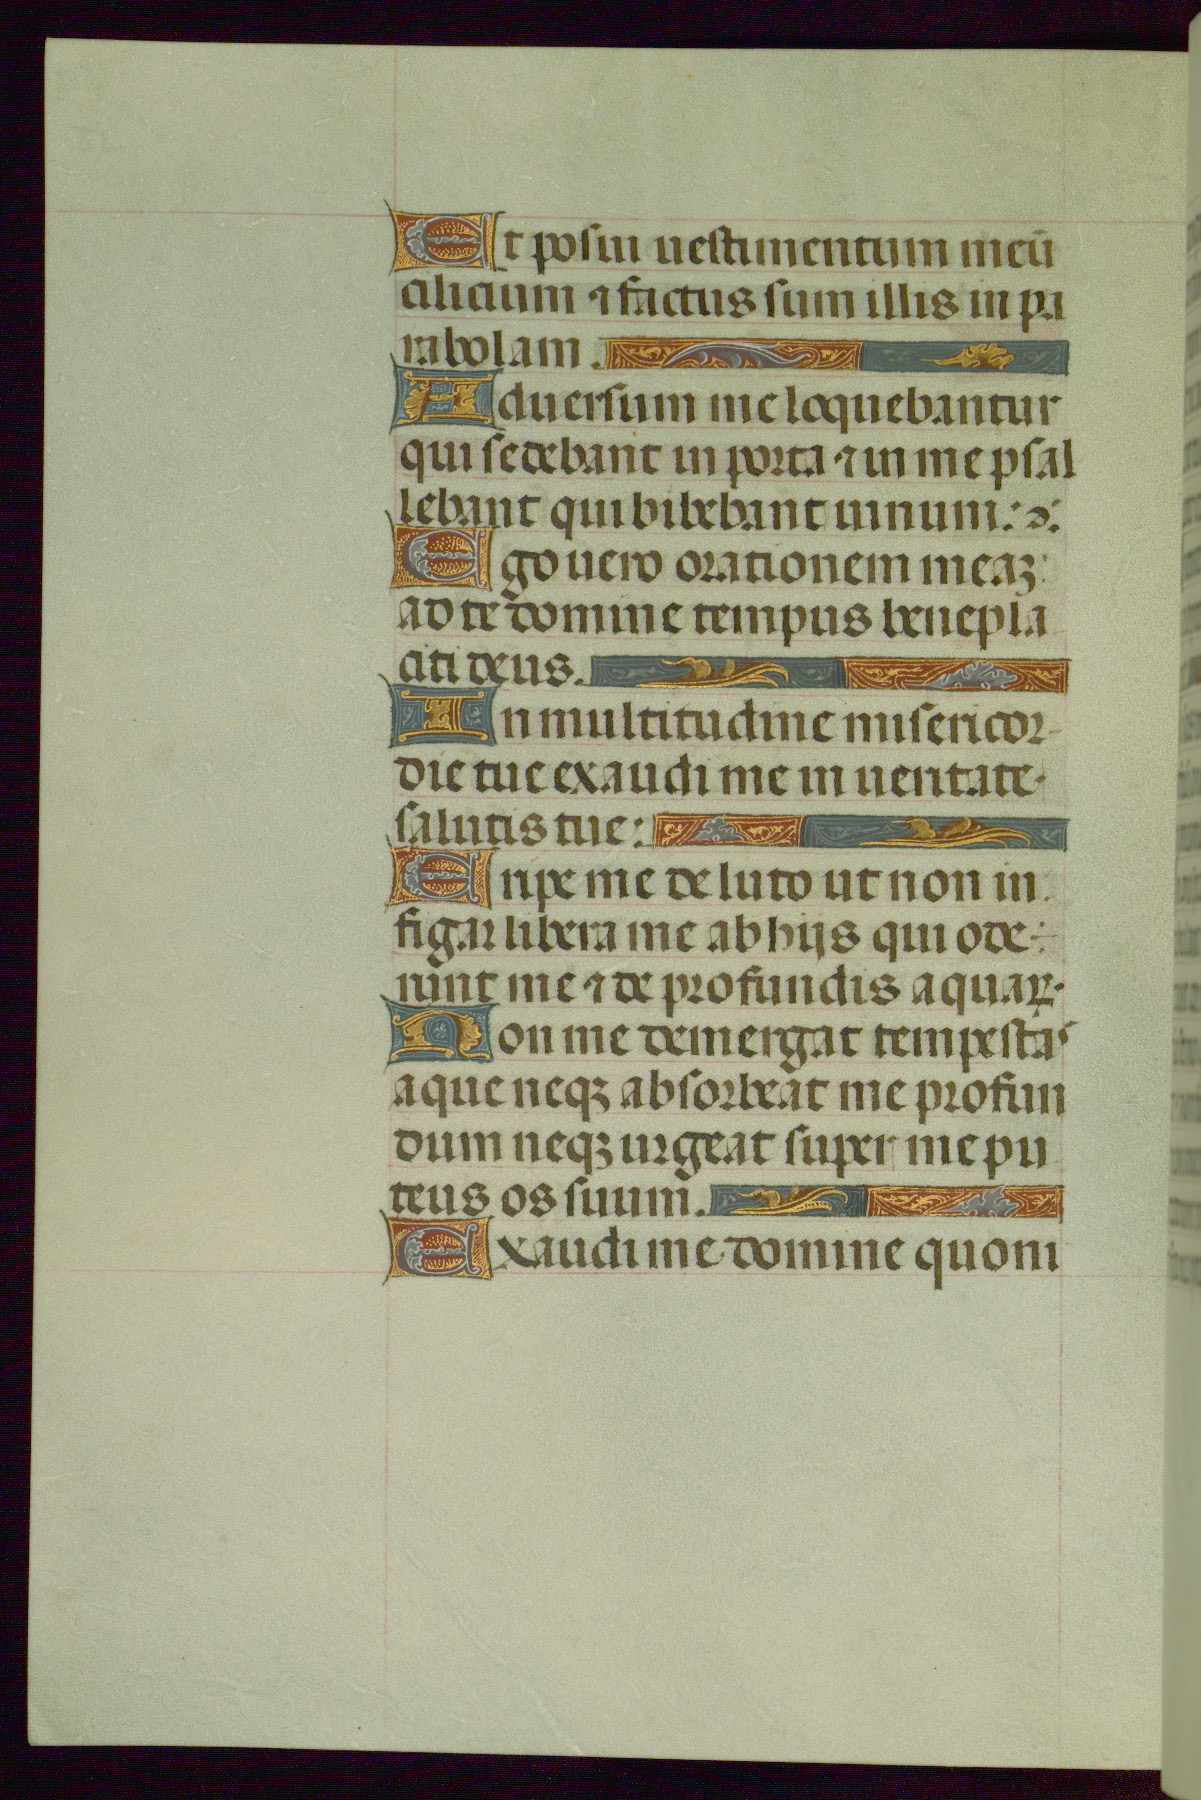 Et posui uestimentum meū
cilicium ⁊ factus sum illis in pa
rabolam.
Aduersum me loquebantur
qui sedebant in porta ⁊ in me psal
lebant qui bibebant uinum:
Ego uero orationem meaꝫ
ad te domine tempus benepla
citi deus.
In multitudine misericor-
die tue exaudi me in ueritate
salutis tue:
Eripe me de luto ut non in
figar libera me ab hijs qui ode
runt me ⁊ de profundis aquaꝝ
Non me demergat tempestas
aque neqꝫ absorbeat me profun
dum neqꝫ urgeat super me pu
teus os suum.
Exaudi me domine quoni